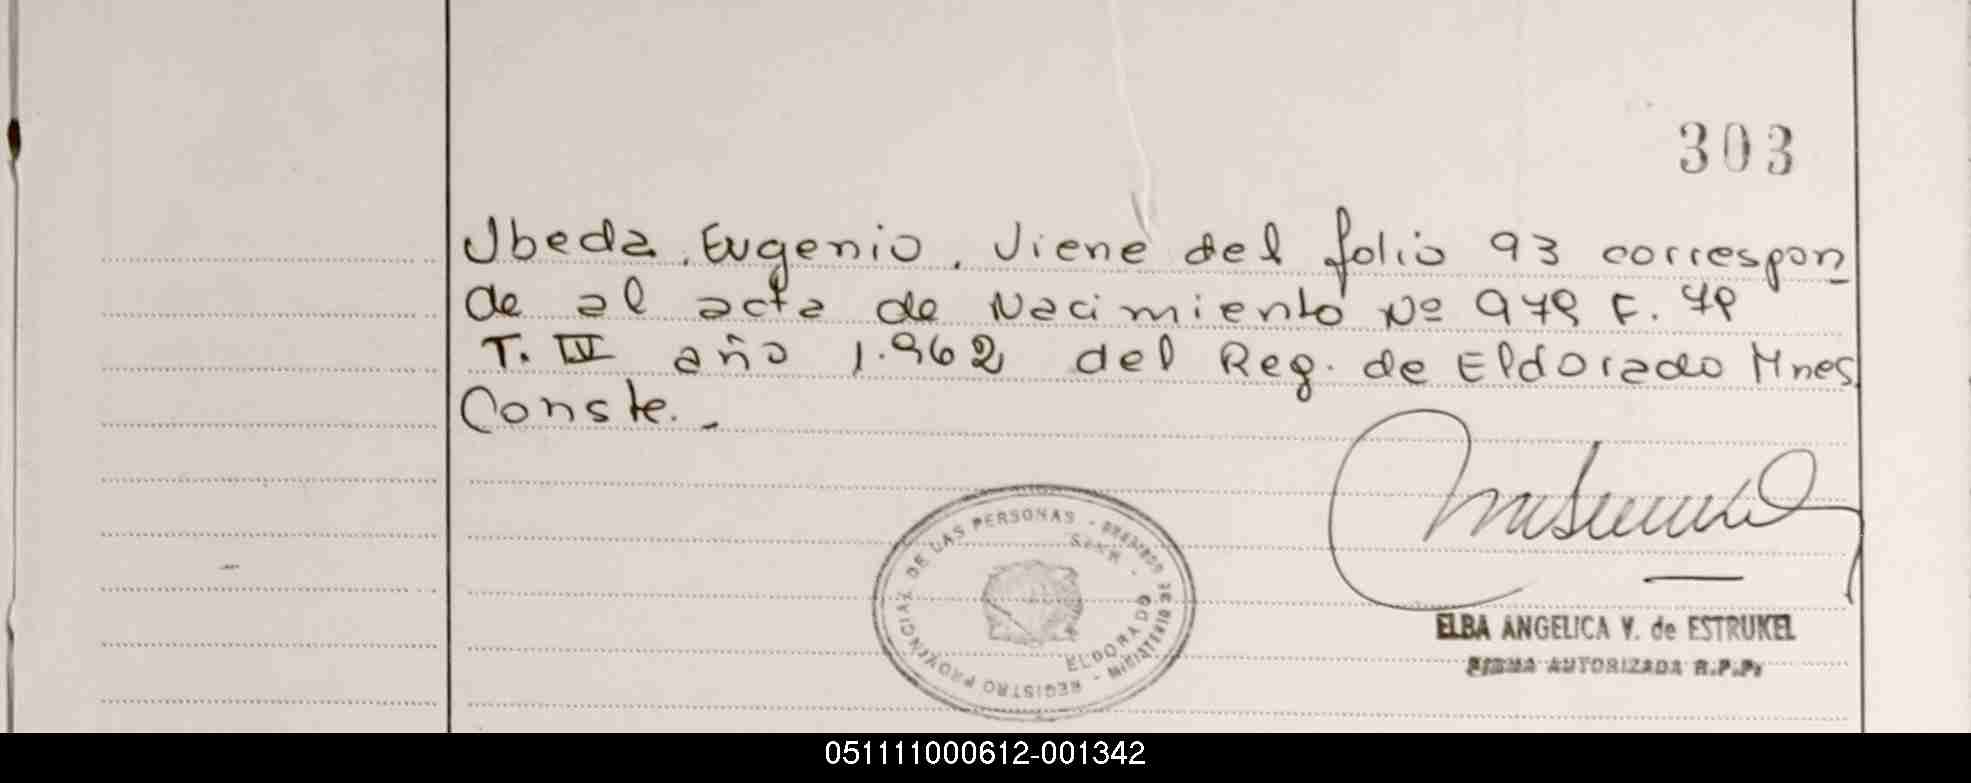 303
Ubeda, Eugenio. Viene del folio 93 correspon
de al acta de Nacimiento Nº 979 F. 79
T. IV año 1.962 del Reg. de Eldorado Mnes
Conste.-
REGISTRO PROVINCIAL DE LAS PERSONAS - MINISTERIO DE GOBIERNO
ELDORADO
ELBA ANGELICA V. de ESTRUKEL
FIRMA AUTORIZADA R.P.P.
051111000612-001342